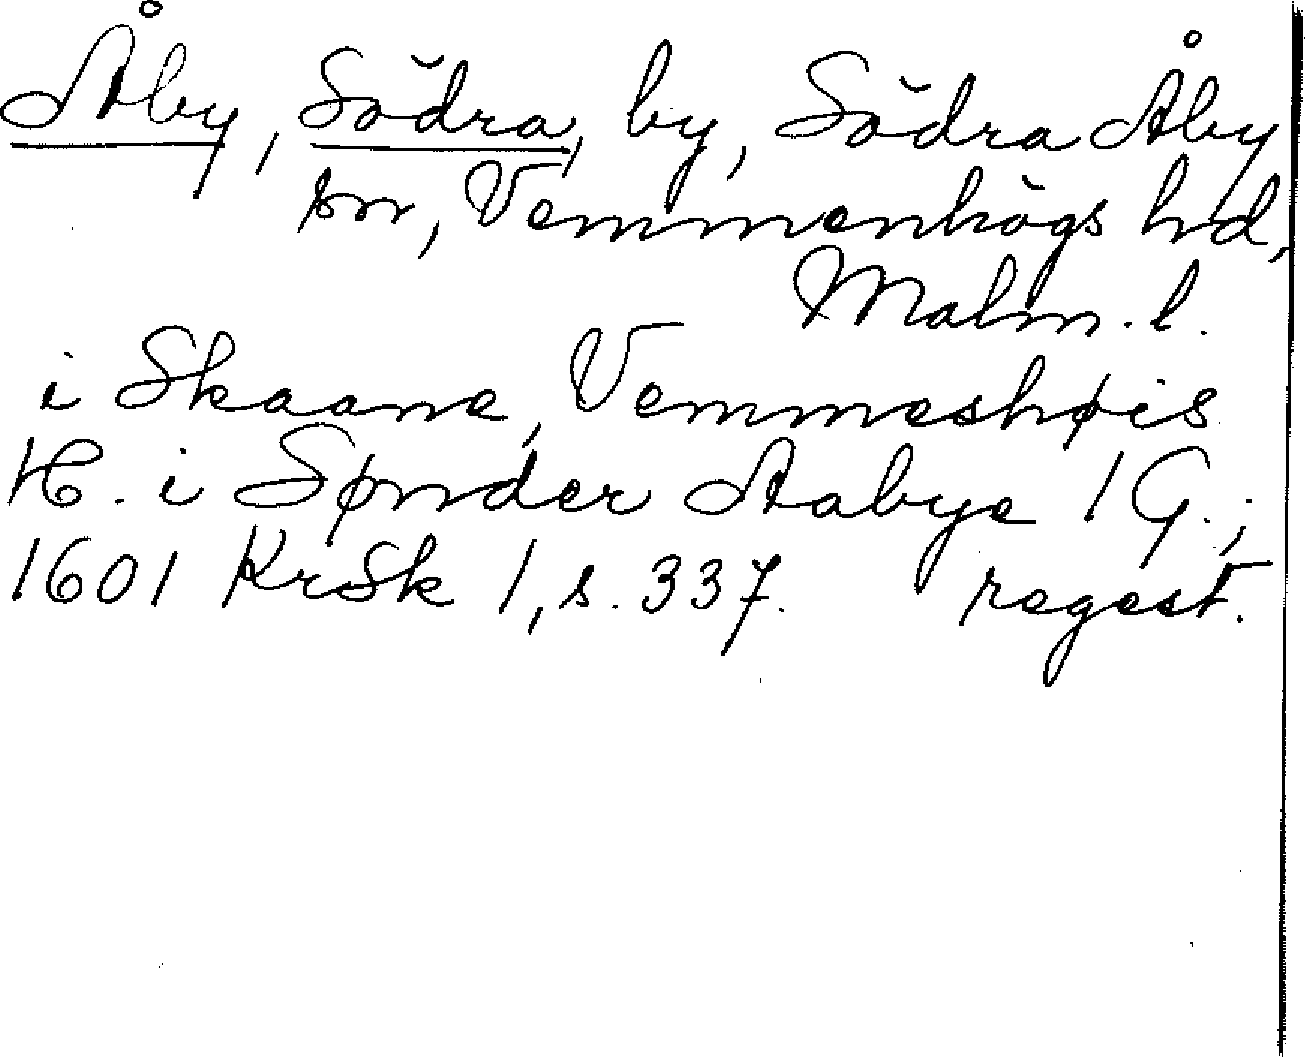 Åby, Södra, by, Södra Åby
sn, Vemmenhögs hd,
Malm. l.
i Skaane, Vemmeshøis
H. i Sønder Aabye 1 G.;
1601 KrSk 1, s. 337. regest.